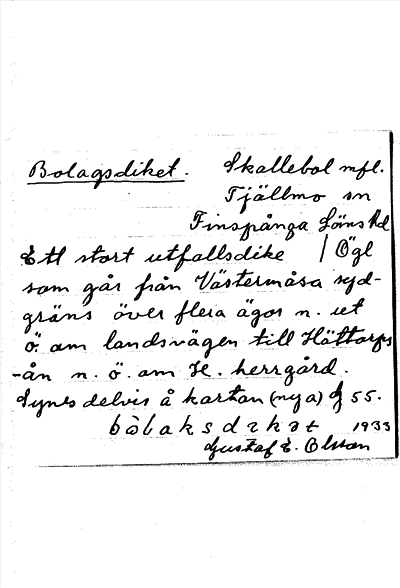 Bolagsdiket. Skallebol mfl.
Tjällmo sn
Finspånga Läns hd
Ett stort utfallsdike / Ögl
som går från Västermåsa syd-
gräns över flera ägor n. ut
ö. om landsvägen till Hättorps
-ån n. ö. om H. herrgård.
Synes delvis å kartan (nya) 55.
1933
Gustaf E. Olsson